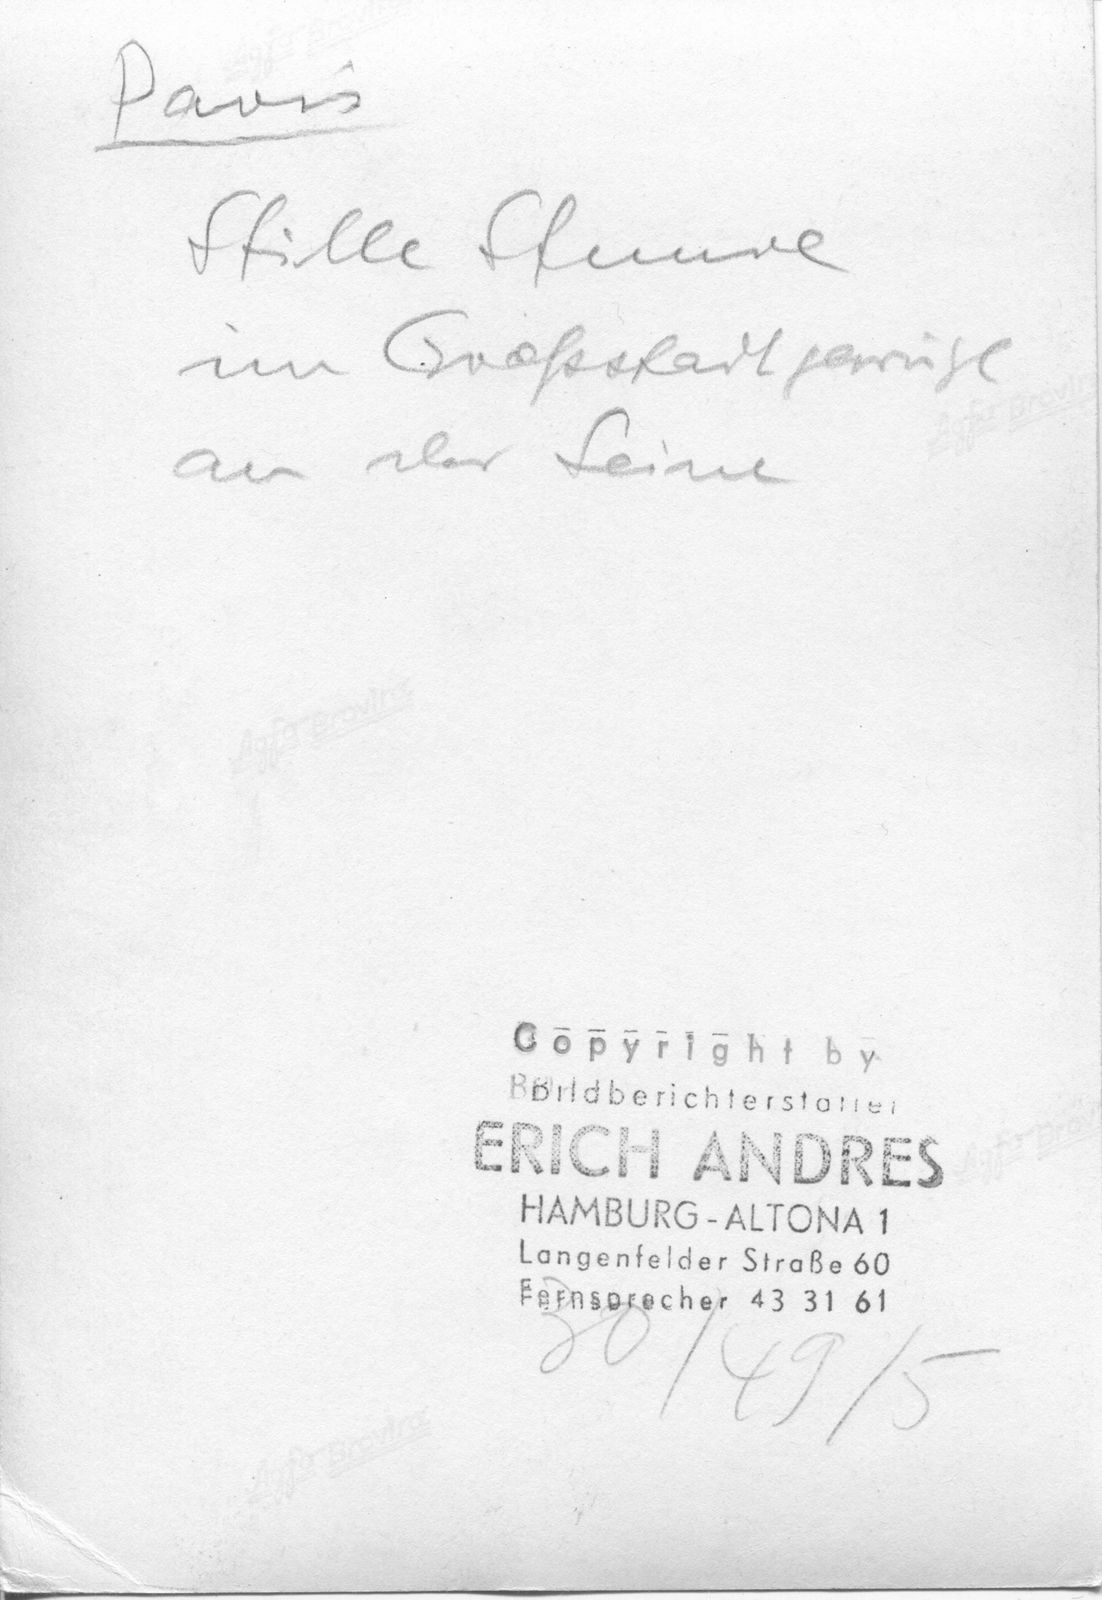 Paris
Stille Stunde
im Großstadtgewühl
an der Seine
Agfa Brovira
Agfa Brovira
Agfa Brovira
Copyright by
Bildberichterstatter
ERICH ANDRES
Agfa Brovira
HAMBURG-ALTONA 1
Langenfelder Straße 60
Fernsprecher 43 31 61
30/49/5
Agfa Brovira